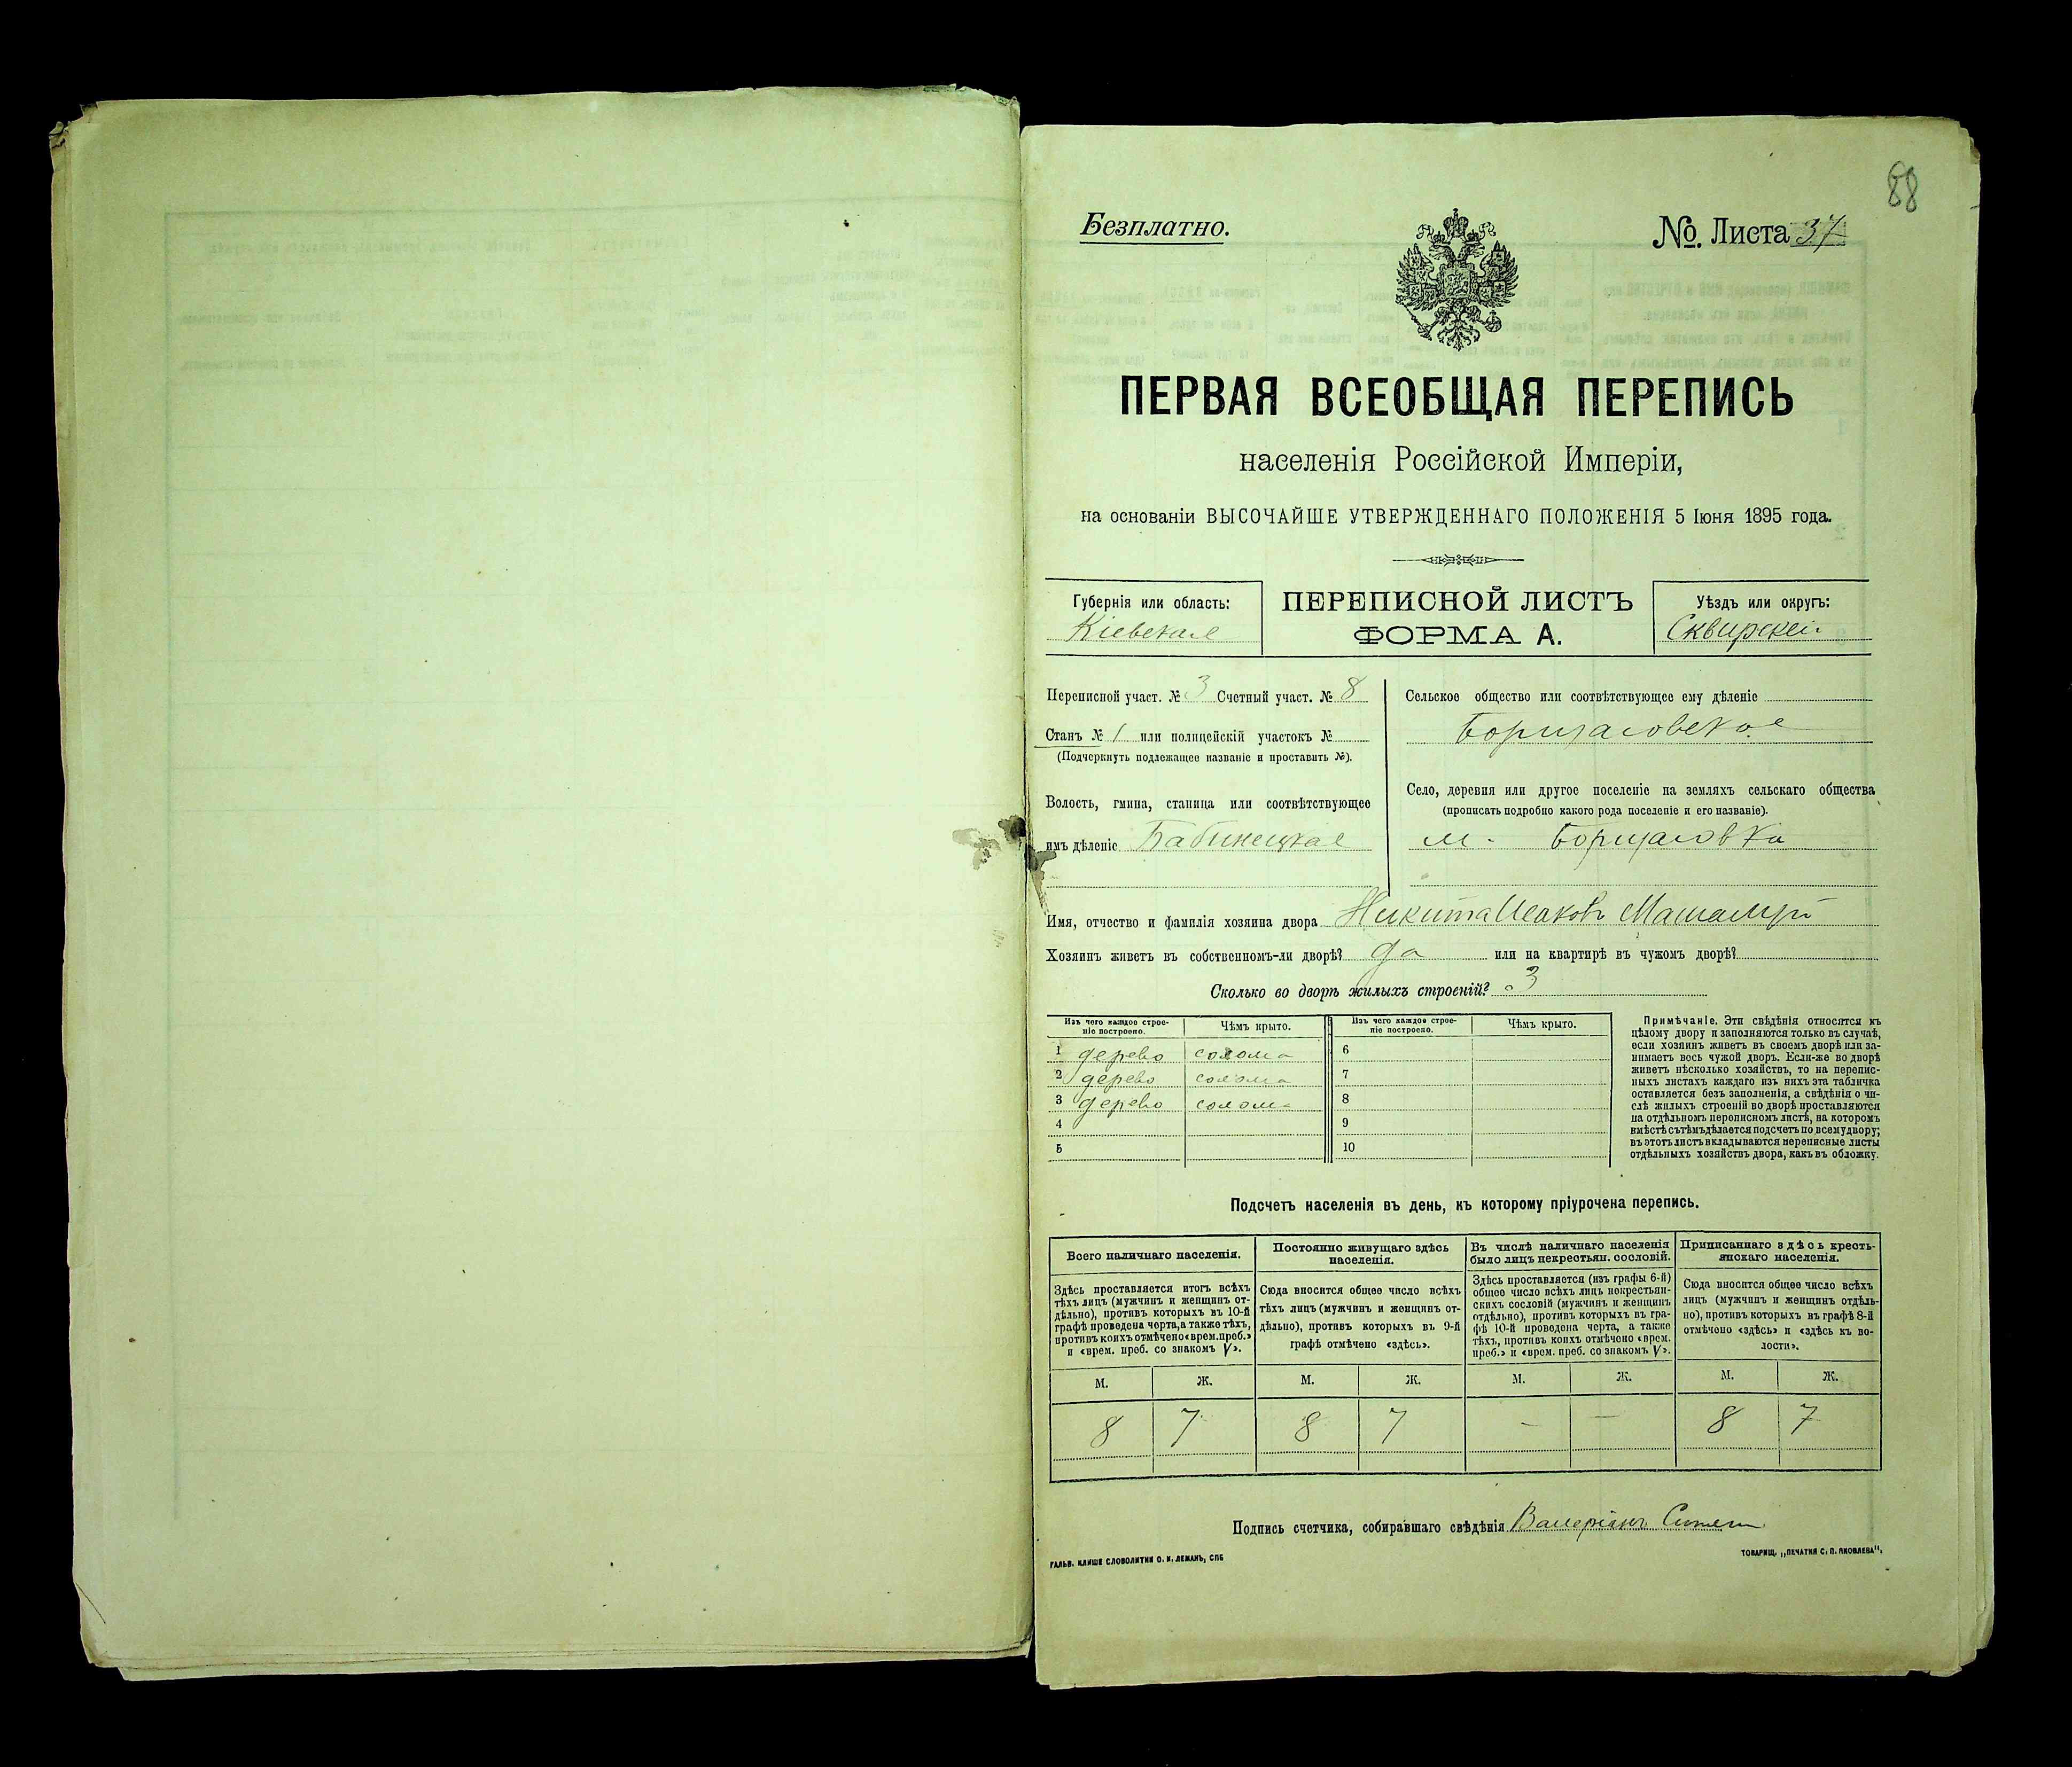 88
Безплатно.
№. Листа 37
ПЕРВАЯ ВСЕОБЩАЯ ПЕРЕПИСЬ
населенія Россійской Имперіи,
на основаніи ВЫСОЧАЙШЕ УТВЕРЖДЕННАГО ПОЛОЖЕНІЯ 5 Іюня 1895 года.
Губернія или область:
Кіевская
ПЕРЕПИСНОЙ ЛИСТЪ
ФОРМА А.
Уѣздъ или округъ:
Сквирскій
Переписной участ. № 3 Счетный участ. № 8
Станъ № 1 или полицейскій участокъ №
(Подчеркнуть подлежащее названіе и проставить №).
Волость, гмина, станица или соотвѣтствующее
имъ дѣленіе Бабинецкая
Сельское общество или соотвѣтствующее ему дѣленіе
Борщаговское
Село, деревня или другое поселеніе на земляхъ сельскаго общества
(прописать подробно какого рода поселеніе и его названіе).
м. Борщаговка
Имя, отчество и фамилія хозяина двора Никита Исаковъ
Хозяинъ живетъ въ собственномъ-ли дворѣ? да или на квартирѣ въ чужомъ дворѣ?
Сколько во дворѣ жилыхъ строеній? 3
Изъ чего каждое строе-
ніе построено.
Чѣмъ крыто.
Изъ чего каждое строе-
ніе построено.
Чѣмъ крыто.
1 дерево солома 6
2 дерево солома 7
3 дерево солома 8
4 9
5 10
Примѣчаніе. Эти свѣдѣнія относятся къ
цѣлому двору и заполняются только въ случаѣ,
если хозяинъ живетъ въ своемъ дворѣ или за-
нимаетъ весь чужой дворъ. Если-же во дворѣ
живетъ нѣсколько хозяйствъ, то на перепис-
ныхъ листахъ каждаго изъ нихъ эта табличка
оставляется безъ заполненія, а свѣдѣнія о чи-
слѣ жилыхъ строеній во дворѣ проставляются
на отдѣльномъ переписномъ листѣ, на которомъ
вмѣстѣ съ тѣмъ дѣлается подсчетъ по всему двору;
въ этотъ листъ вкладываются переписные листы
отдѣльныхъ хозяйствъ двора, какъ въ обложку.
Подсчетъ населенія въ день, къ которому пріурочена перепись.
Всего наличнаго населенія.
Здѣсь проставляется итогъ всѣхъ
тѣхъ лицъ (мужчинъ и женщинъ от-
дѣльно), противъ которыхъ въ 10-й
графѣ проведена черта, а также тѣхъ,
противъ коихъ отмѣчено «врем. преб.»
и «врем. преб. со знакомъ V».
Постоянно живущаго здѣсь
населенія.
Сюда вносится общее число всѣхъ
тѣхъ лицъ (мужчинъ и женщинъ от-
дѣльно), противъ которыхъ въ 9-й
графѣ отмѣчено «здѣсь».
Въ числѣ наличнаго населенія
было лицъ некрестьян. сословій.
Здѣсь проставляется (изъ графы 6-й)
общее число всѣхъ лицъ некрестьян-
скихъ сословій (мужчинъ и женщинъ
отдѣльно), противъ которыхъ въ гра-
фѣ 10-й проведена черта, а также
тѣхъ, противъ коихъ отмѣчено «врем.
преб.» и «врем. преб. со знакомъ V».
Приписаннаго здѣсь кресть-
янскаго населенія.
Сюда вносится общее число всѣхъ
лицъ (мужчинъ и женщинъ отдѣль-
но), противъ которыхъ въ графѣ 8-й
отмѣчено «здѣсь» и «здѣсь къ во-
лости».
М. Ж. М. Ж. М. Ж. М. Ж.
8 7 8 7 — — 8 7
Подпись счетчика, собиравшаго свѣдѣнія Валеріанъ
ГАЛЬВ. КЛИШЕ СЛОВОЛИТНИ О. И. ЛЕМАНЪ, СПБ
ТОВАРИЩ. „ПЕЧАТНЯ С. П. ЯКОВЛЕВА".